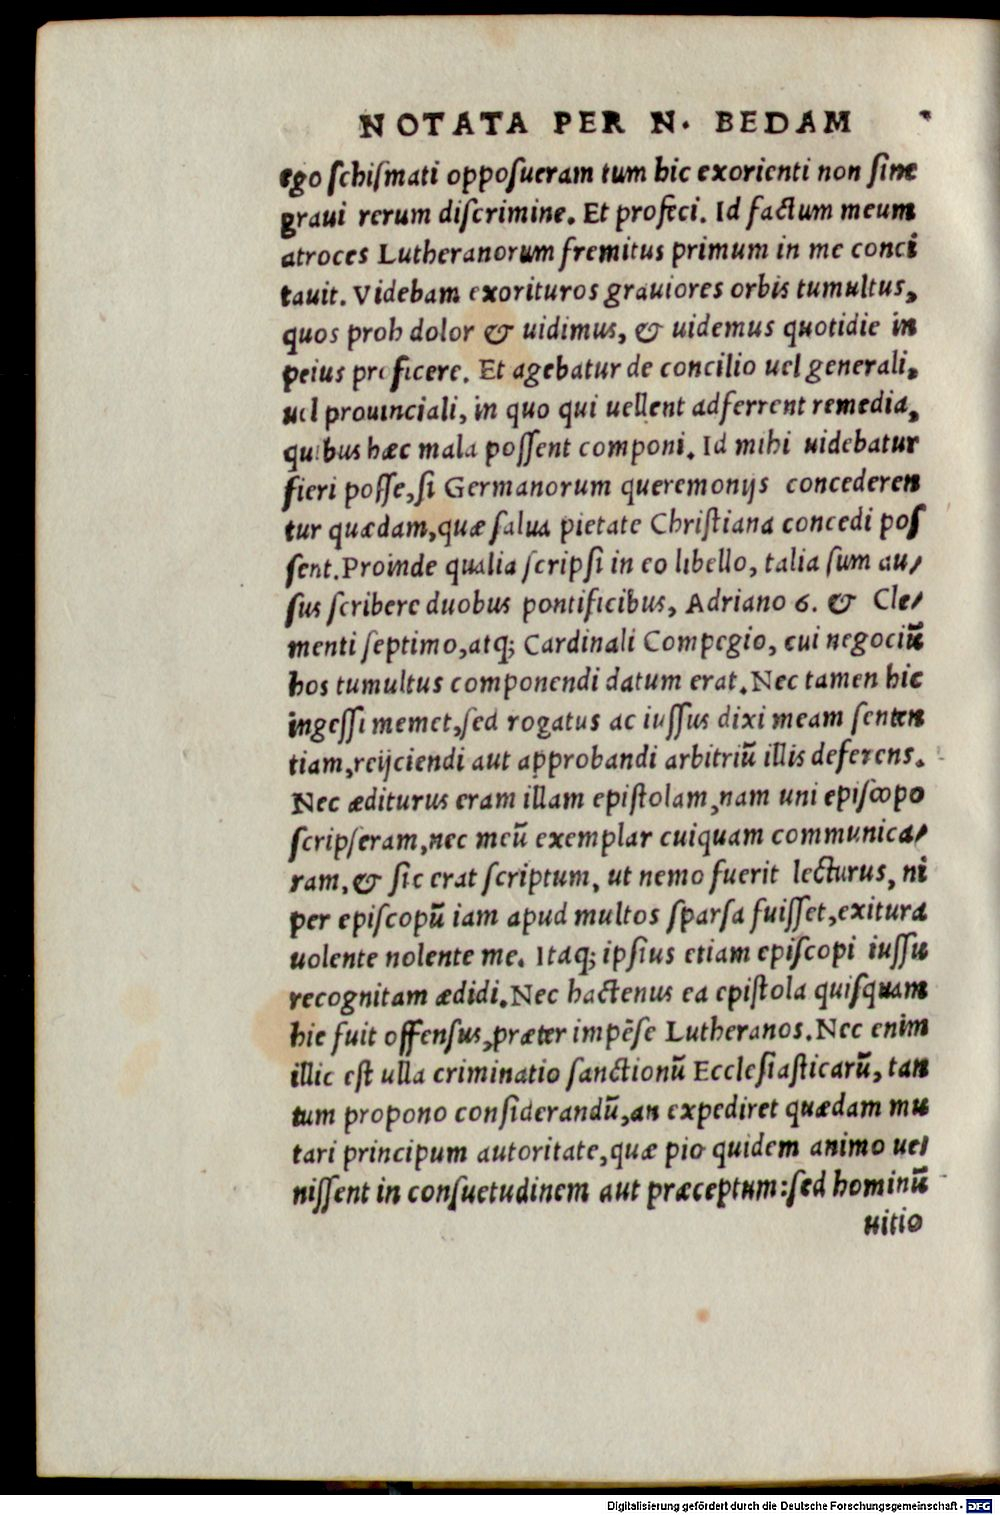 NOTATA PER N. BEDAM
ego schismati opposueram tum hic exorienti non sine
graui rerum discrimine. Et profeci. Id factum meum
atroces Lutheranorum fremitus primum in me conci
tauit. Videbam exorituros grauiores orbis tumultus,
quos proh dolor & uidimus, & uidemus quotidie in
peius proficere. Et agebatur de concilio uel generali,
uel prouinciali, in quo qui uellent adferrent remedia,
quibus hæc mala possent componi. Id mihi uidebatur
fieri posse, si Germanorum queremonijs concederen
tur quædam, quæ salua pietate Christiana concedi pos
sent. Proinde qualia scripsi in eo libello, talia sum au/
sus scribere duobus pontificibus, Adriano 6. & Cle/
menti septimo, atq; Cardinali Compegio, cui negociũ
hos tumultus componendi datum erat. Nec tamen hic
ingessi memet, sed rogatus ac iussus dixi meam senten
tiam, reijciendi aut approbandi arbitriũ illis deferens.
Nec æditurus eram illam epistolam, nam uni episcopo
scripseram, nec meũ exemplar cuiquam communica/
ram, & sic erat scriptum, ut nemo fuerit lecturus, ni
per episcopũ iam apud multos sparsa fuisset, exitura
uolente nolente me. Itaq; ipsius etiam episcopi iussu
recognitam ædidi. Nec hactenus ea epistola quisquam
hic fuit offensus, præter impẽse Lutheranos. Nec enim
illic est ulla criminatio sanctionũ Ecclesiasticarũ, tan
tum propono considerandũ, an expediret quædam mu
tari principum autoritate, quæ pio quidem animo ue/
nissent in consuetudinem aut præceptum: sed hominũ
uitio
Digitalisierung gefördert durch die Deutsche Forschungsgemeinschaft - DFG